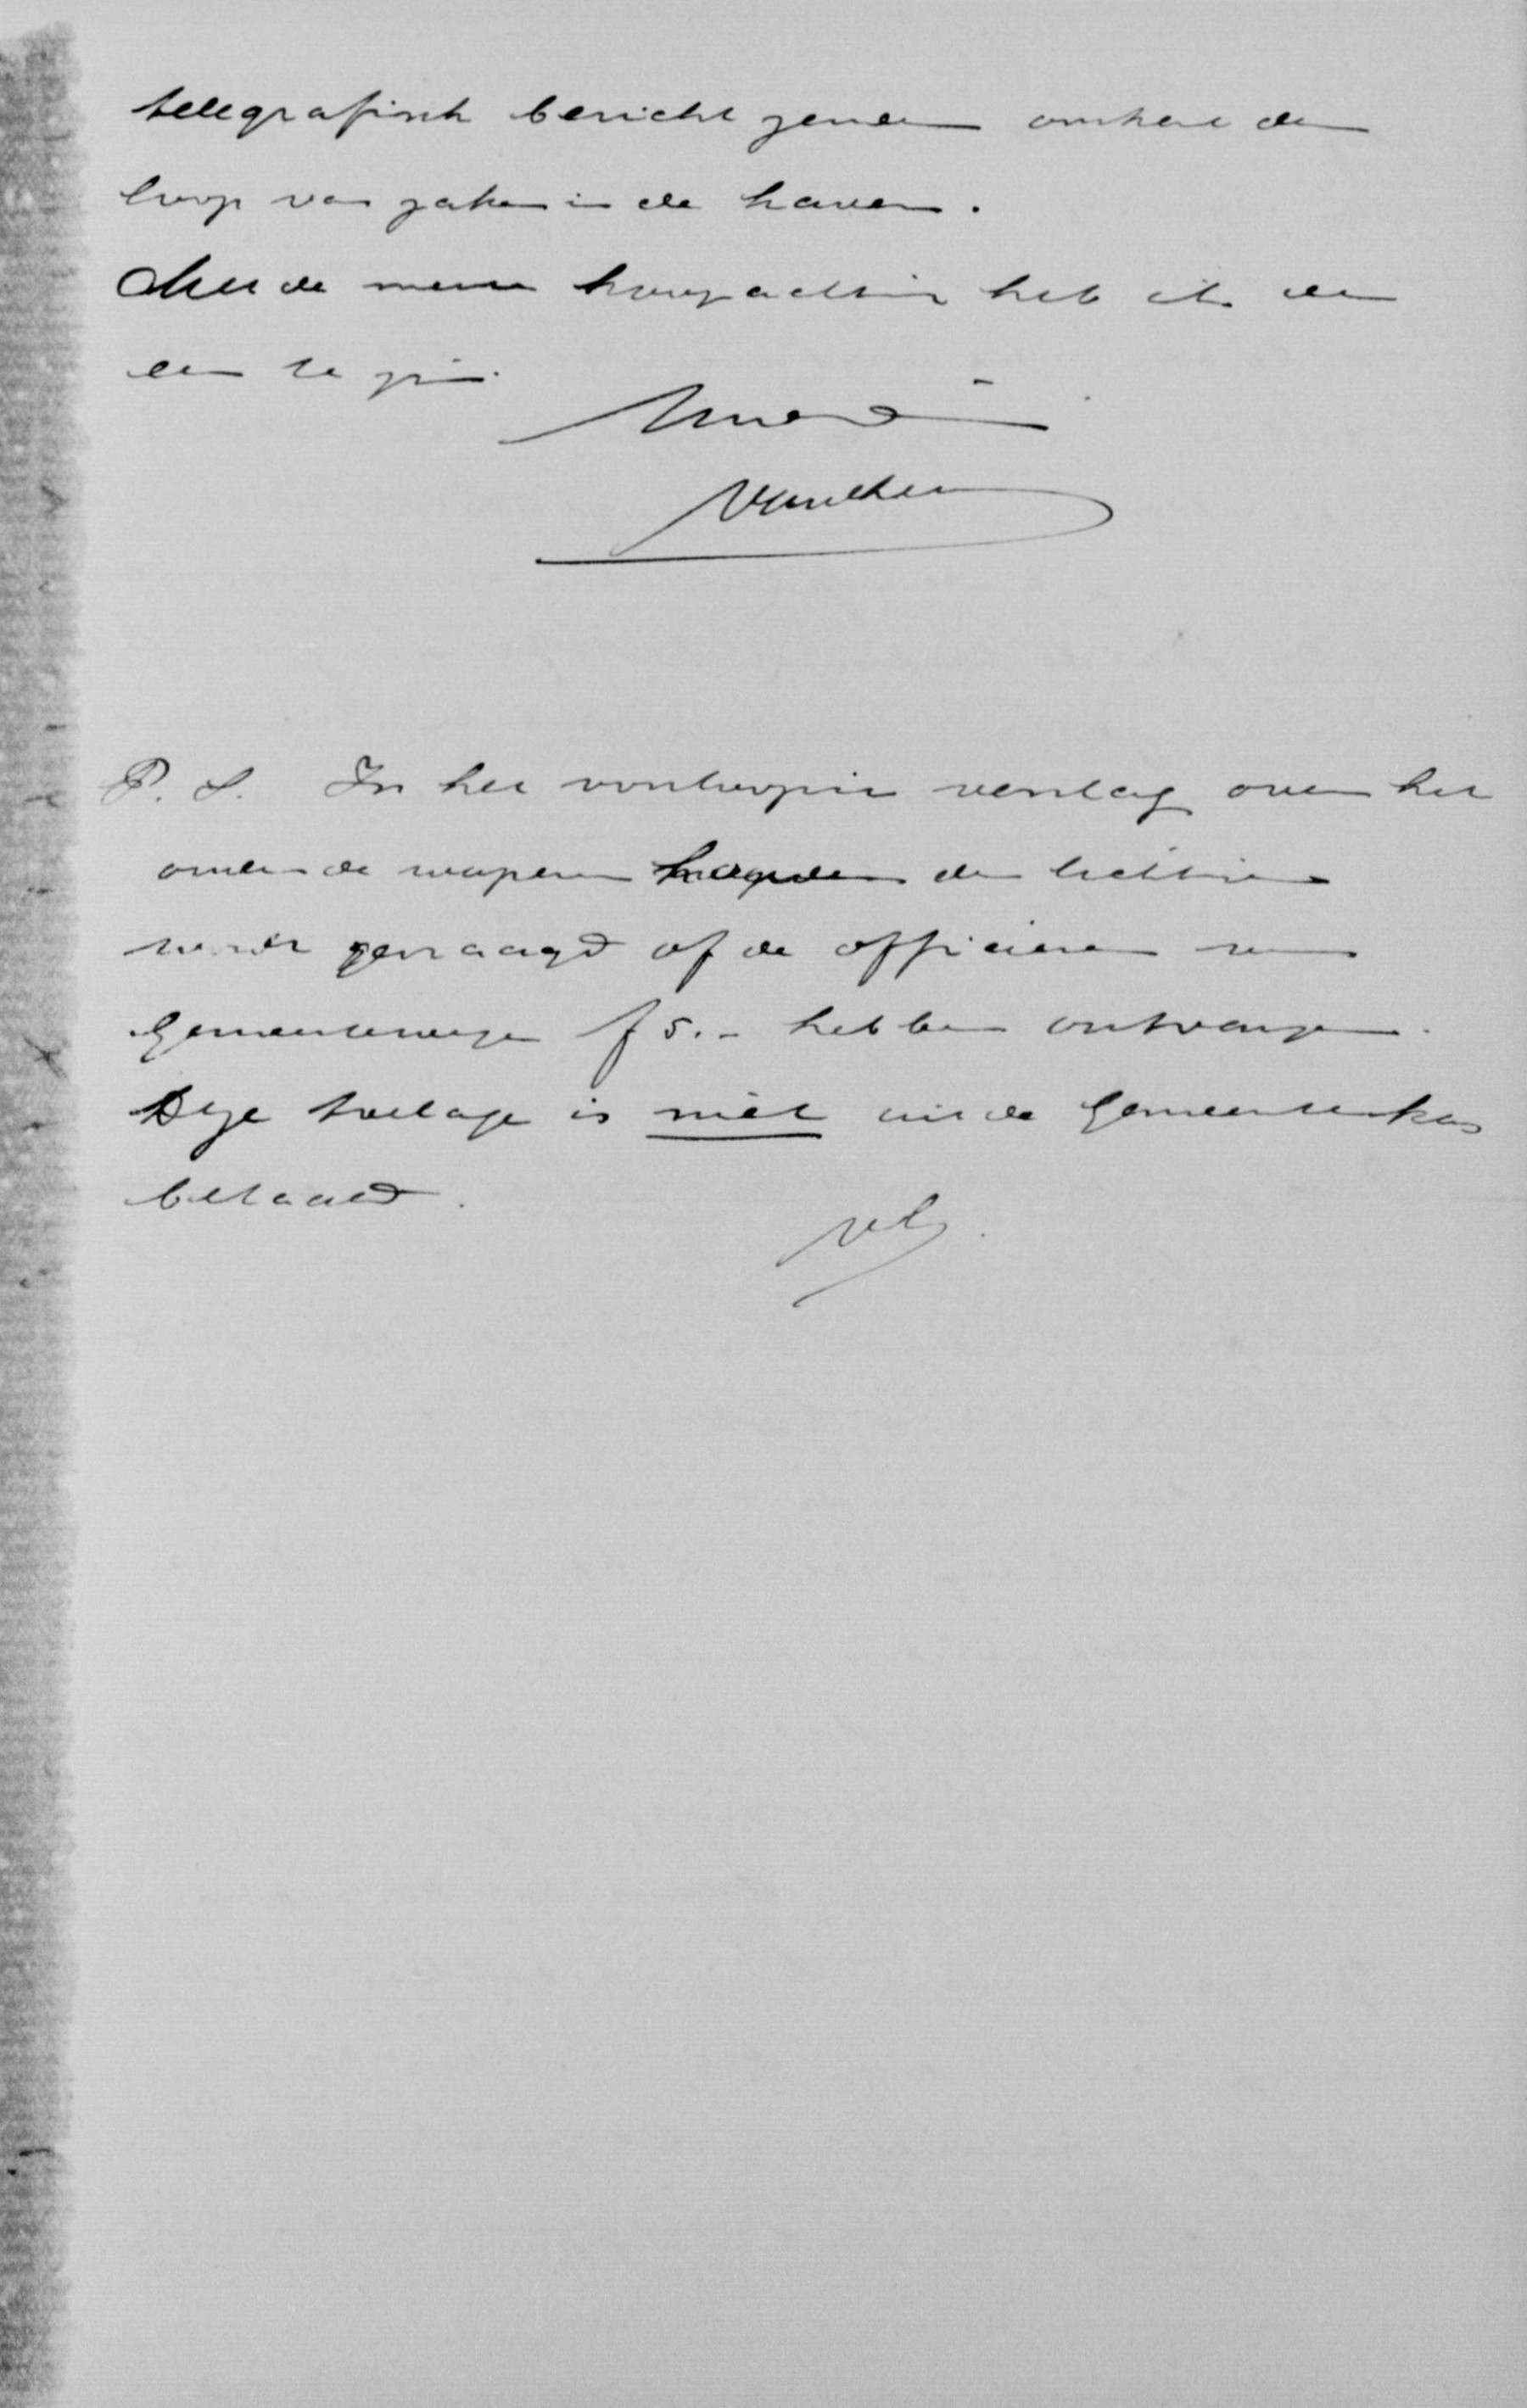 telegrafisch bericht zenden omtrent den
loop van zaken in de haven.
Met de meeste hoogachting heb ik de
eer te zijn.
P. S. In het voorloopig verslag over het
onder de wapenen houden der lichting
wordt gevraagd of de officieren van
Gemeentewege f 5.- hebben ontvangen.
Deze toelage is niet uit de Gemeentekas
betaald.